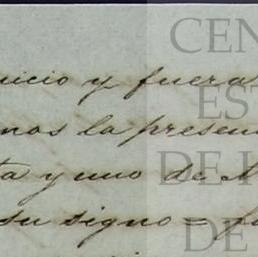 uicio y fuera
mos la presen
ta y uno de
su signo =
CEN
EST
DE
DE